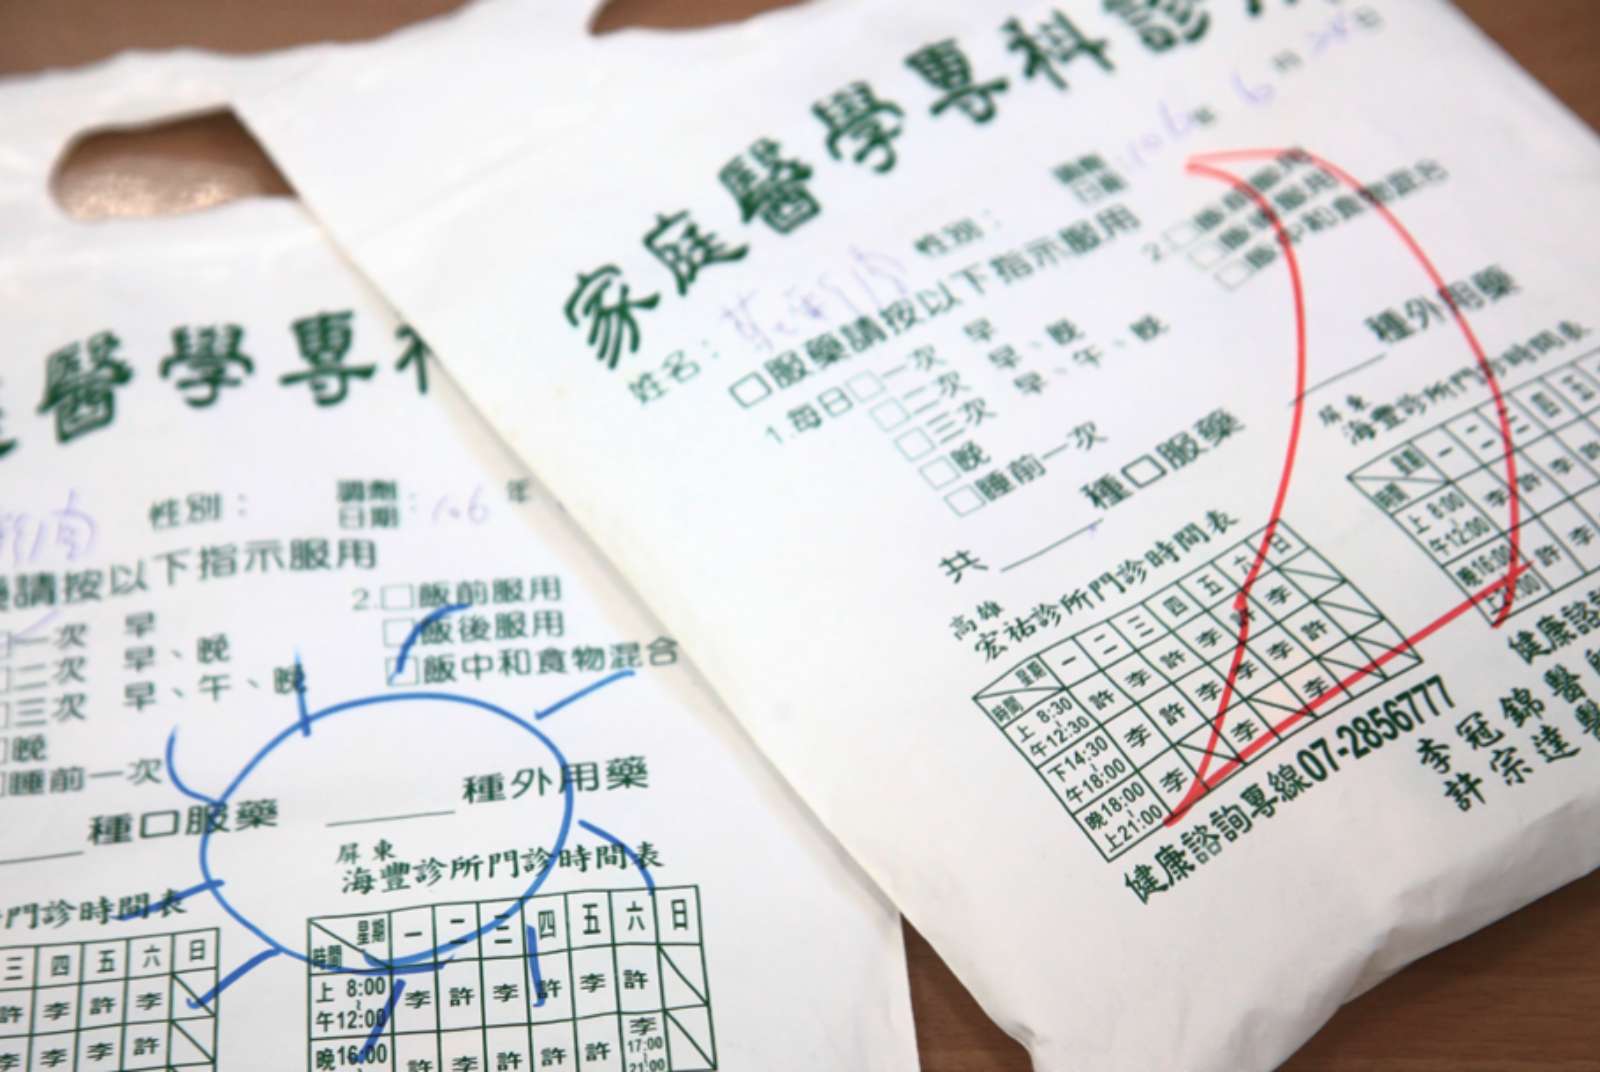 醫學專科
性別： 調劑日期：106年
請按以下指示服用
一次 早
二次 早、晚
三次 早、午、晚
晚
睡前一次
2.□飯前服用
□飯後服用
□飯中和食物混合
種口服藥 種外用藥
門診時間表
三 四 五 六 日
許 李 許 李
李 李 李 許
屏東
海豐診所門診時間表
星期 時間 一 二 三 四 五 六 日
上午 8:00~12:00 李 許 李 許 李 許
晚 16:00 許 李 許 許 許 李 17:00~21:00
家庭醫學專科診
姓名： 性別： 調劑日期：106年6月
□服藥請按以下指示服用
1.每日□一次 早
□二次 早、晚
□三次 早、午、晚
□晚
□睡前一次
2.□飯前服用
□飯後服用
□飯中和食物混合
共 種口服藥 種外用藥
高雄
宏祐診所門診時間表
星期 時間 一 二 三 四 五 六 日
上午 8:30~12:30
下午 14:30~18:00
晚上 18:00~21:00
健康諮詢專線07-2856777
屏東
海豐診所門診時間表
星期 時間 一 二 三 四 五
上午 8:00~12:00
晚上 16:00
健康諮
李冠錦醫
許宗達醫